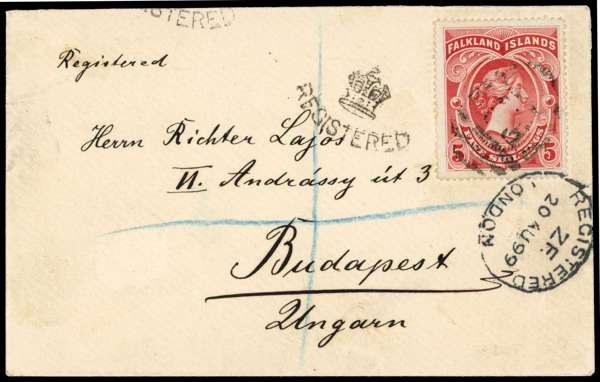 REGISTERED
Registered
FALKLAND ISLANDS
REGISTERED
Herrn Richter Lajos
5 FIVE SHILLINGS 5
VI. Andrássy út 3
REGISTERED
LONDON
20 AU 99
Z.F.
Budapest
Ungarn